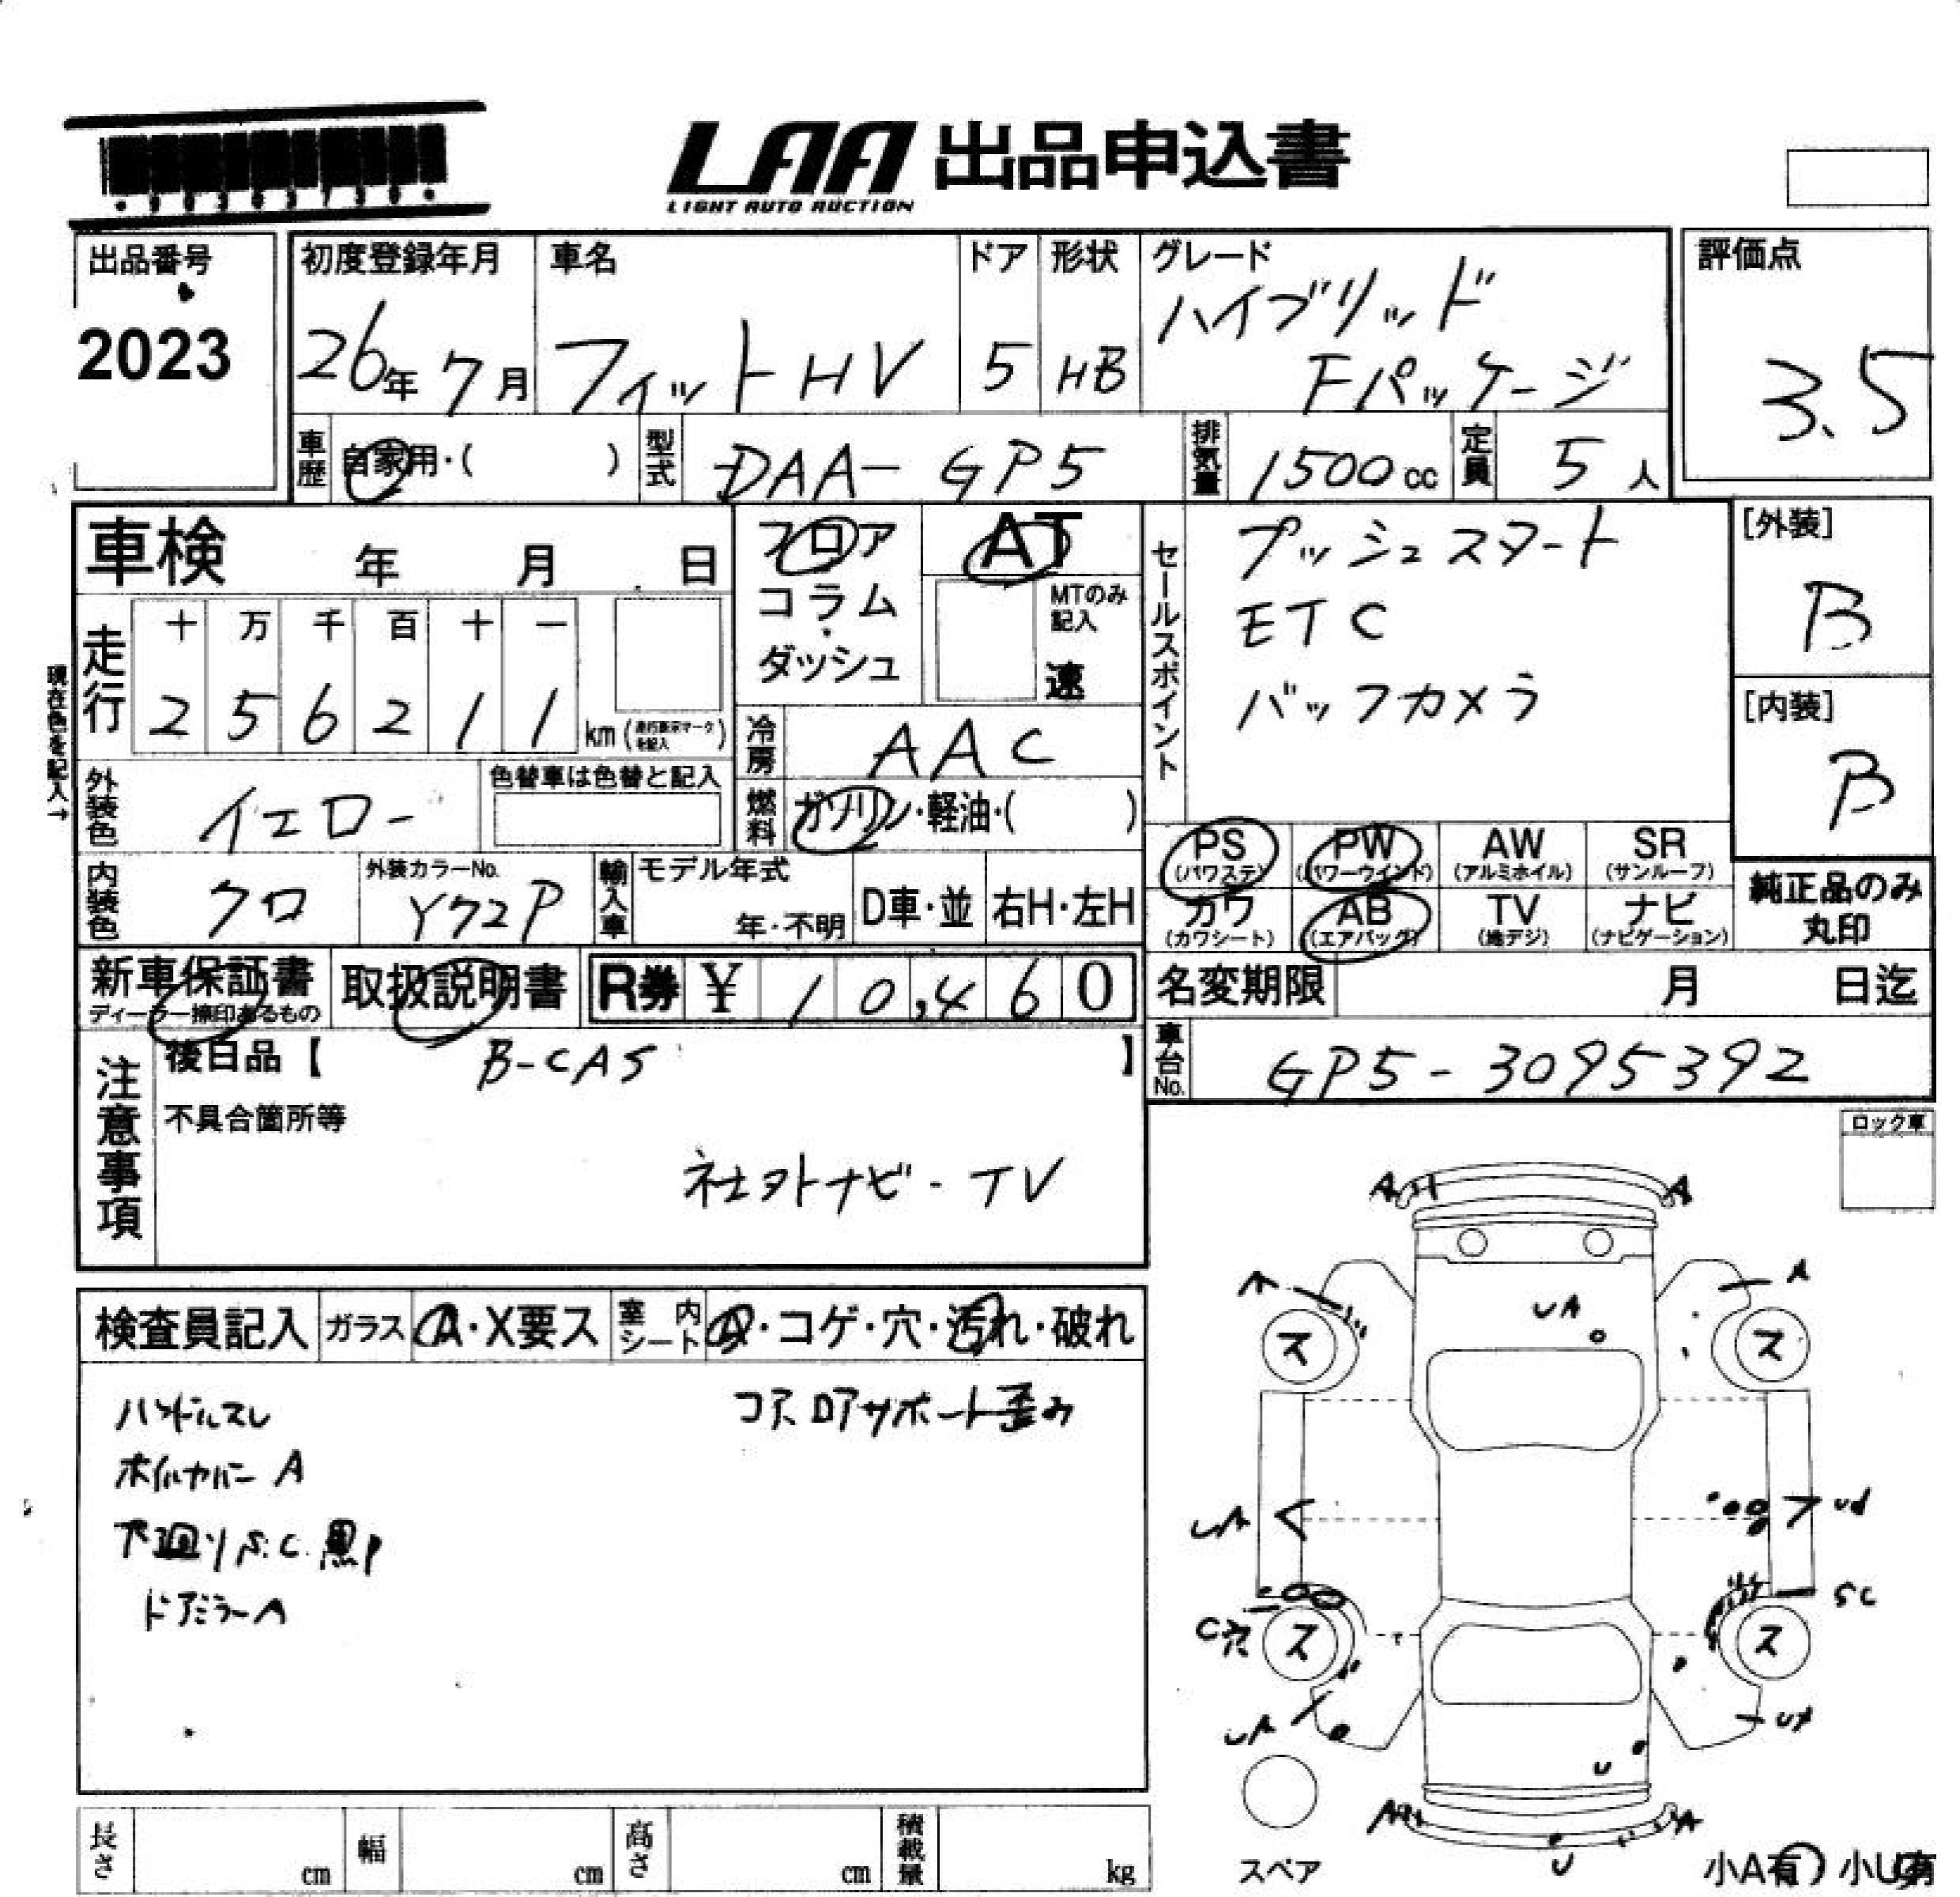 LAA 出品申込書
LIGHT AUTO AUCTION
出品番号
2023
初度登録年月
26年 7月
車名
フィットHV
ドア
5
形状
HB
グレード
ハイブリッド
Fパッケージ
評価点
3.5
車歴
自家用・( )
型式
DAA-GP5
排気量
1500cc
定員
5人
車検 年 月 日
フロア
コラム
・
ダッシュ
AT
MTのみ
記入
速
セールスポイント
プッシュスタート
ETC
バックカメラ
[外装]
B
[内装]
B
現在色を記入→
走行
十 万 千 百 十 一
2 5 6 2 1 1
km (走行表示マークを記入)
冷房
AAC
外装色
イエロー
色替車は色替と記入
燃料
ガソリン・軽油・( )
PS
(パワステ)
PW
(パワーウインド)
AW
(アルミホイル)
SR
(サンルーフ)
カワ
(カワシート)
AB
(エアバッグ)
TV
(地デジ)
ナビ
(ナビゲーション)
純正品のみ
丸印
内装色
クロ
外装カラーNo.
Y72P
輸入車
モデル年式
年・不明
D車・並
右H・左H
新車保証書
ディーラー捺印あるもの
取扱説明書
R券 ¥ 10,460
名変期限 月 日迄
注意事項
後日品【 B-CAS 】
車台No.
GP5-3095392
不具合箇所等
社外ナビ-TV
ロック車
検査員記入
ガラス
A・X要ス
室内シート
・コゲ・穴・汚れ・破れ
ハンドルスレ
コアロアサポート歪み
ホイルカバー A
下廻りS.C.黒P
ドアミラーA
A A
A A
UA
ス ス
UA
SC
C穴
ス ス
UA
U
A A
U
スペア
小A有 小U有
長さ cm
幅 cm
高さ cm
積載量 kg